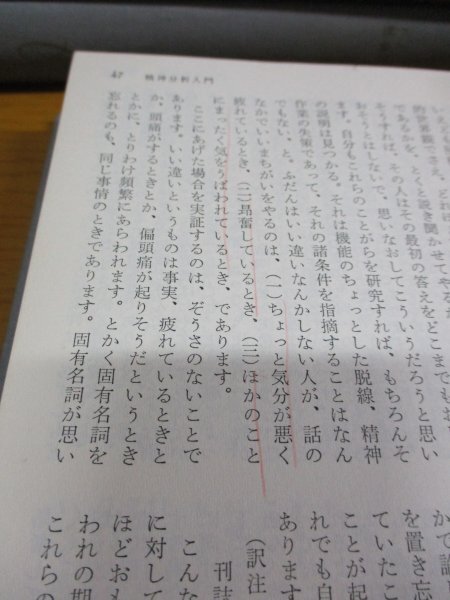 47 精神分析入門
的世界観で
であるかを、とくと説き聞かせてやる
そうすれば、その人はその最初の答えをどこまでもお
おうとはしないで、思いなおしてこういうだろうと思い
ます。自分もこれらのことがらを研究すれば、もちろんそ
の説明は見つかる。それは機能のちょっとした脱線、精神
作業の失策であって、それの諸条件を指摘することはなん
でもない、と。ふだんはいい違いなんかしない人が、話の
なかでいいまちがいをやるのは、(一)ちょっと気分が悪く
疲れているとき、(二)昂奮しているとき、(三)ほかのこと
にまったく気をうばわれているとき、であります。
ここにあげた場合を実証するのは、ぞうさのないことで
あります。いい違いというものは事実、疲れているときと
か、頭痛がするときとか、偏頭痛が起りそうだというとき
とかに、とりわけ頻繁にあらわれます。とかく固有名詞を
忘れるのも、同じ事情のときであります。固有名詞が思い
かで論
を置き忘
ていたこ
ことが起
れでも自
あります
(訳注
刊誌
こんな
に対して
ほどおも
われの期
これらの